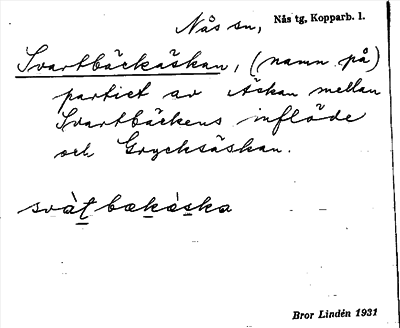 Nås sn, Nås tg, Kopparb. l.
Svartbäckäskan, (namn på)
partiet av Äskan mellan
Svartbäckens inflöde
och Grycksäskan.
svàt bækæska
Bror Lindén 1931